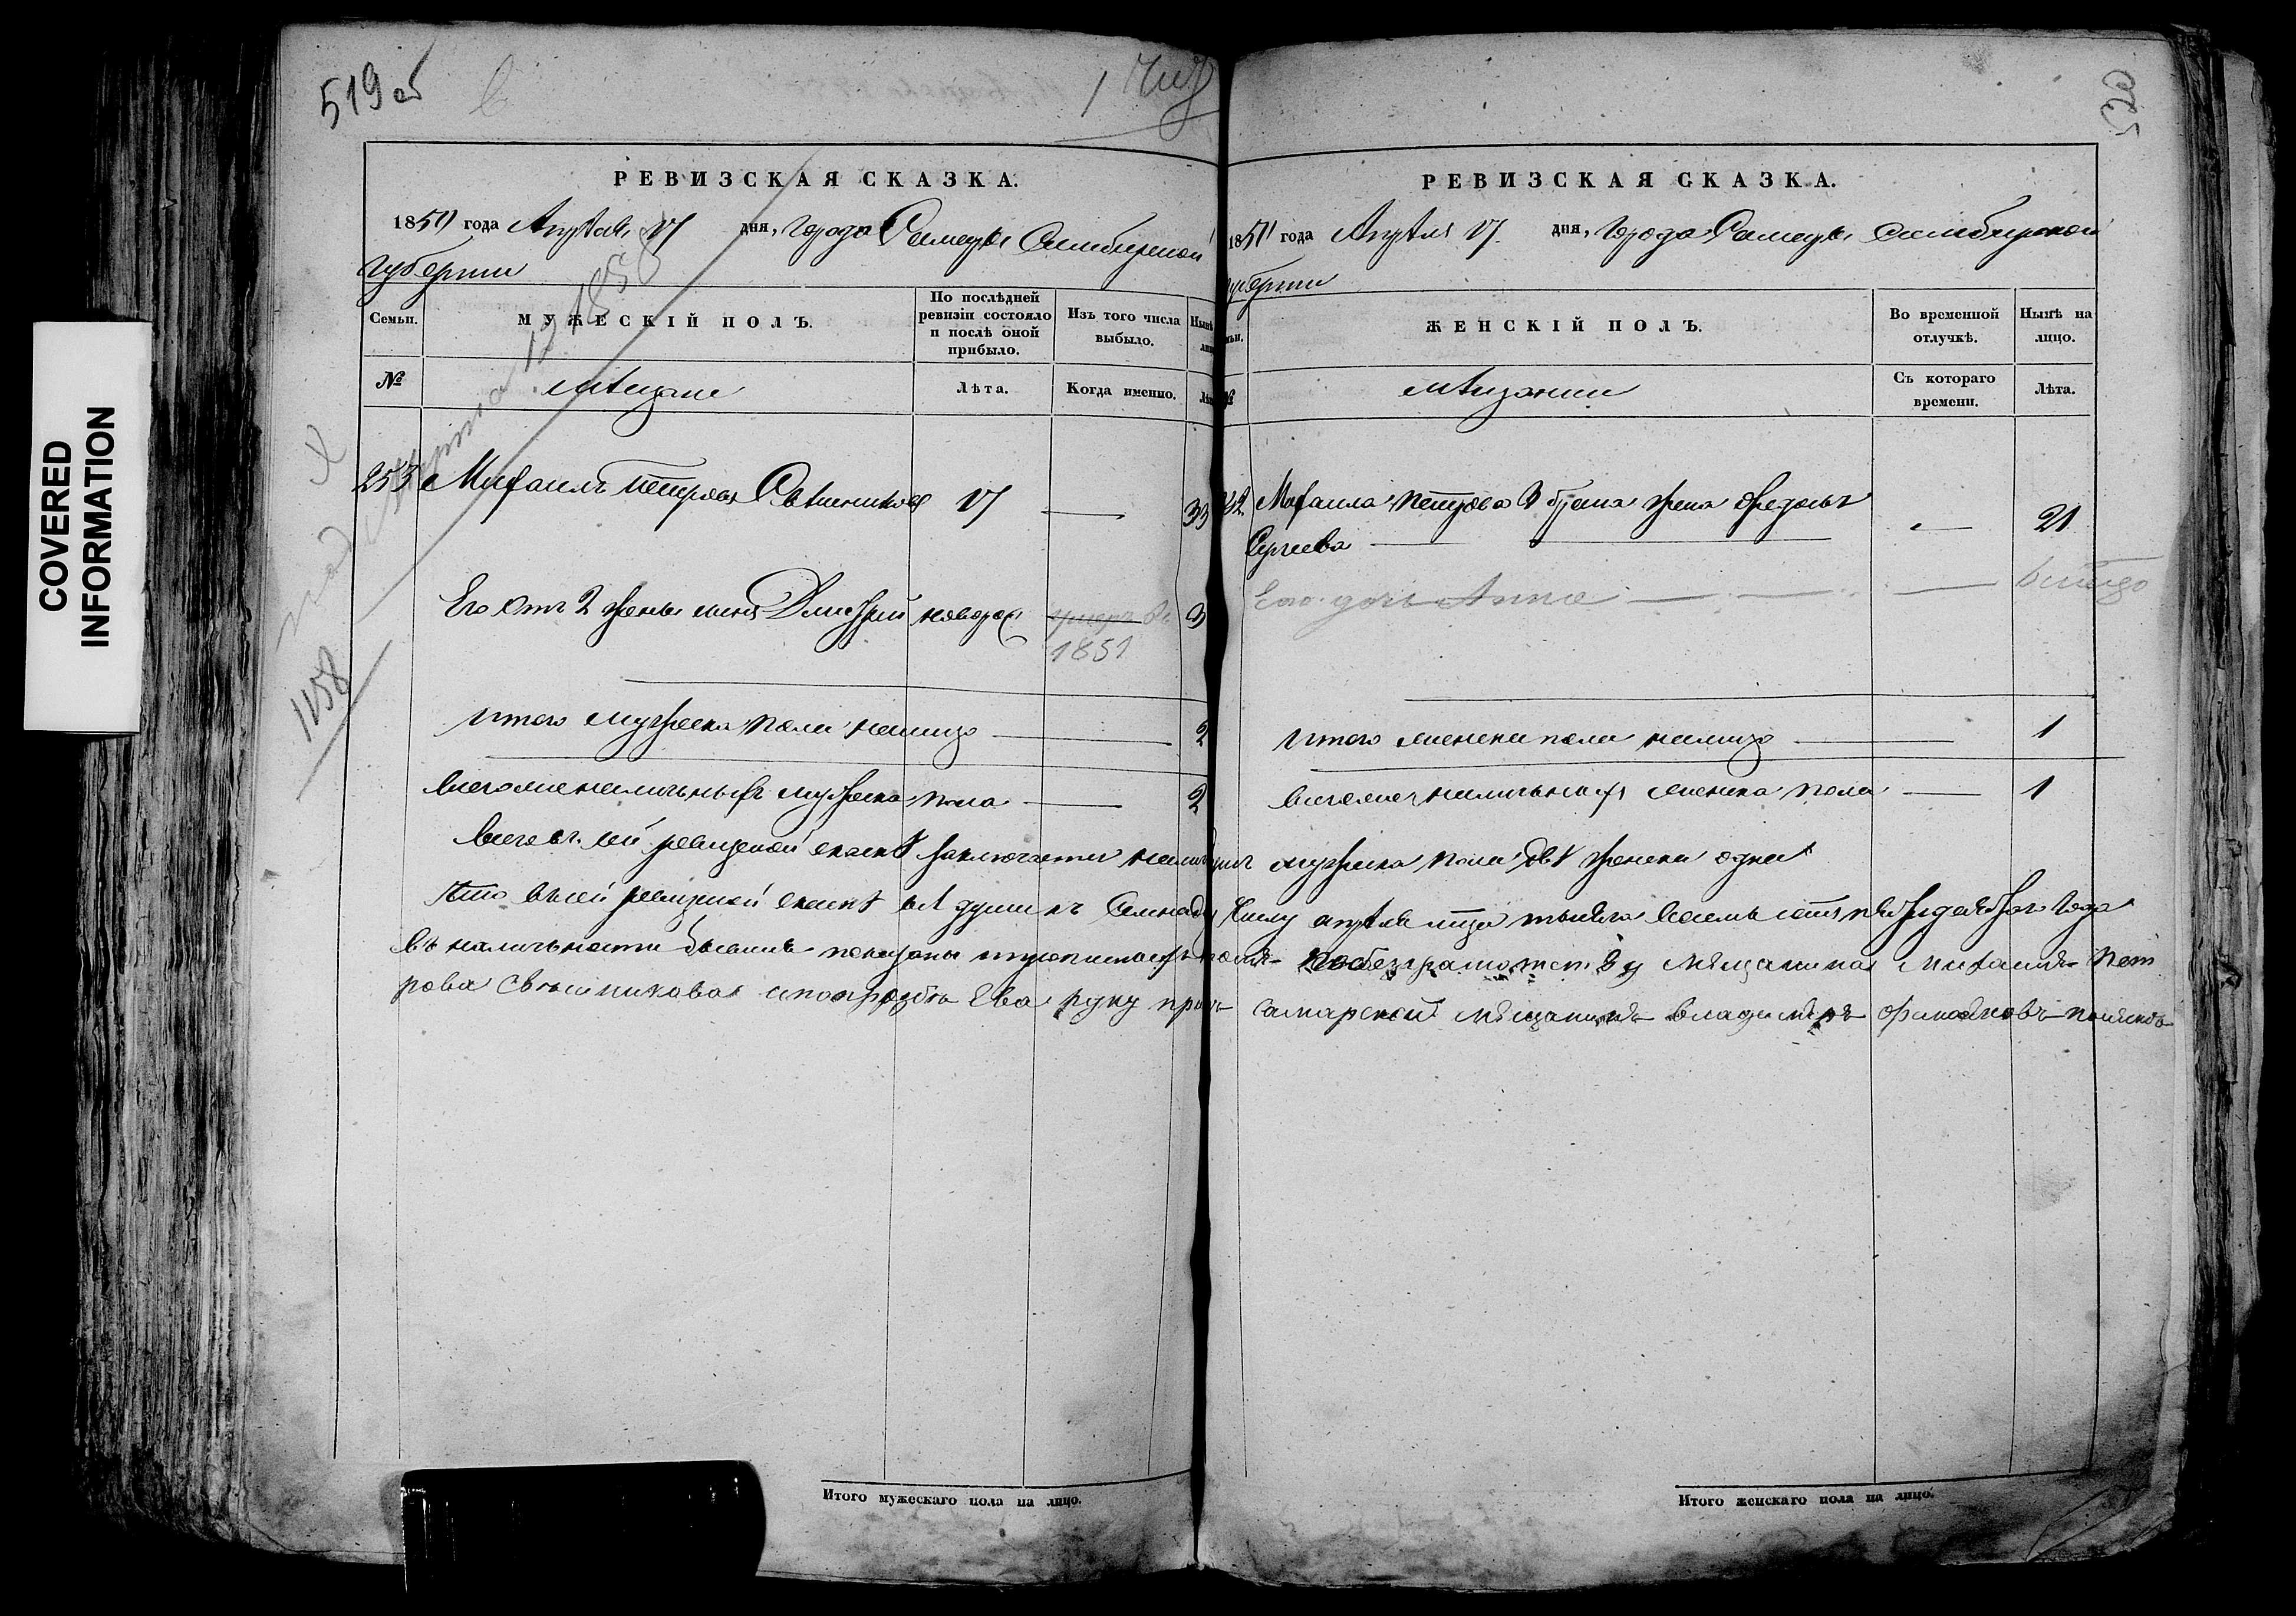 COVERED
INFORMATION
519 об
РЕВИЗСКАЯ СКАЗКА.
1850 года Апреля 17 дня, Города Самары Симбирской
губернии
Семьи.
МУЖЕСКІЙ ПОЛЪ.
По послѣдней
ревизіи состояло
и послѣ оной
прибыло.
Изъ того числа
выбыло.
№
мѣщане
Лѣта.
Когда именно.
253 Михаилъ Петровъ Свешниковъ 17 — 33
Его отъ 2 жены сынъ Дмитрій новорож 3
1851
1158
итого мужеска пола налицо — 2
Всего же наличныхъ мужеска пола — 2
РЕВИЗСКАЯ СКАЗКА.
1850 года Апрѣля 17 дня, Города Самары Симбирской
губернии
ЖЕНСКІЙ ПОЛЪ.
Во временной
отлучкѣ.
Нынѣ на
лицо.
мѣщанки
Съ котораго
времени.
Лѣта.
Михаила Петрова 3 брака жена Федосья
Сергеева — 21
Его дочь Анна
итого женска пола налицо — 1
Всего же наличныхъ женска пола — 1
Всего въ сей ревизской сказкѣ заключается мужеска пола двѣ женска одна
Что в сей ревизской сказкѣ всѣ души къ апреля тысяча восемь сотъ года
въ наличности показаны по безграмотству мѣщанина Михаила Пет
рова Свешникова и по прозбѣ Ево руку самарской мещанинъ владимеръ
Итого мужескаго пола на лицо.
Итого женскаго пола на лицо.
520